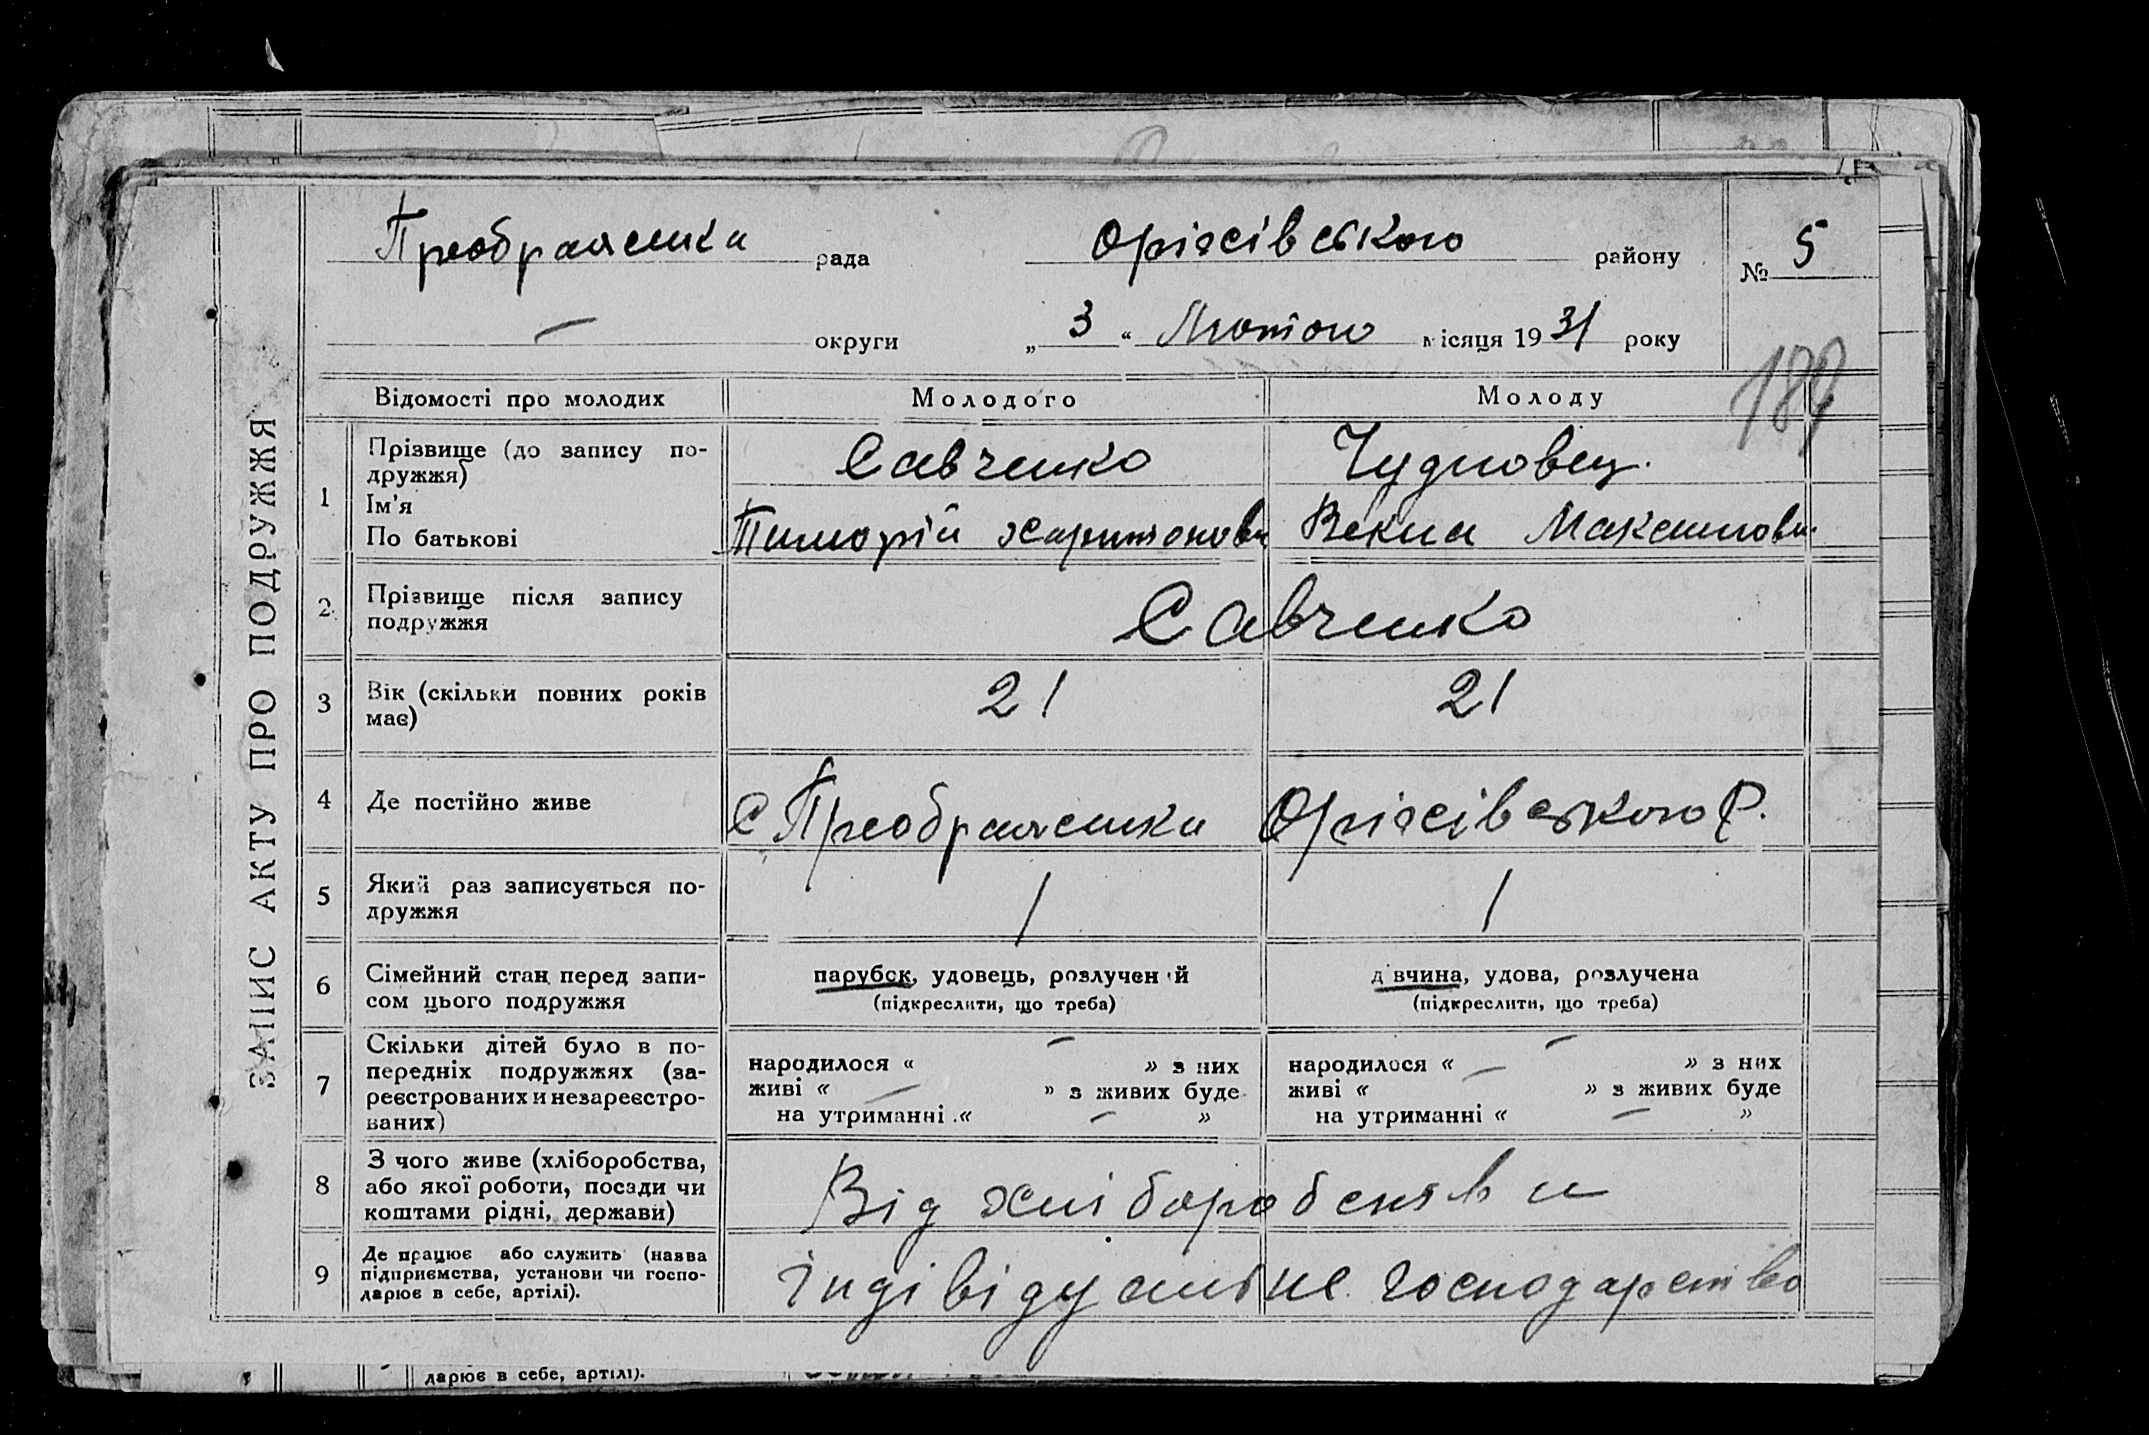 Преображенка рада Оріхівського району № 5
— округи „ 3 “ Лютого місяця 1931 року
189
ЗАПИС АКТУ ПРО ПОДРУЖЖЯ
Відомості про молодих Молодого Молоду
1 Прізвище (до запису по-
дружжя) Савченко Чудновец.
Ім'я
По батькові Тиморій Харитонови Векла Максимовн.
2 Прізвище після запису
подружжя Савченко
3 Вік (скільки повних років
має) 21 21
4 Де постійно живе С Преображенка Оріхівського Р.
5 Який раз записується по-
дружжя 1 1
6 Сімейний стан перед запи-
сом цього подружжя
парубок, удовець, розлучений
(підкреслити, що треба)
дівчина, удова, розлучена
(підкреслити, що треба)
7 Скільки дітей було в по-
передніх подружжях (за-
реєстрованих и незареєстро-
ваних)
народилося « — » з них
живі « — » з живих буде
на утриманні « — »
народилося « — » з них
живі « — » з живих буде
на утриманні « — »
8 З чого живе (хліборобства,
або якої роботи, посади чи
коштами рідні, держави)
Від хліборобства
9 Де працює або служить (назва
підприємства, установи чи госпо-
дарює в себе, артілі).
індівідуальне господарство
дарює в себе, артілі).